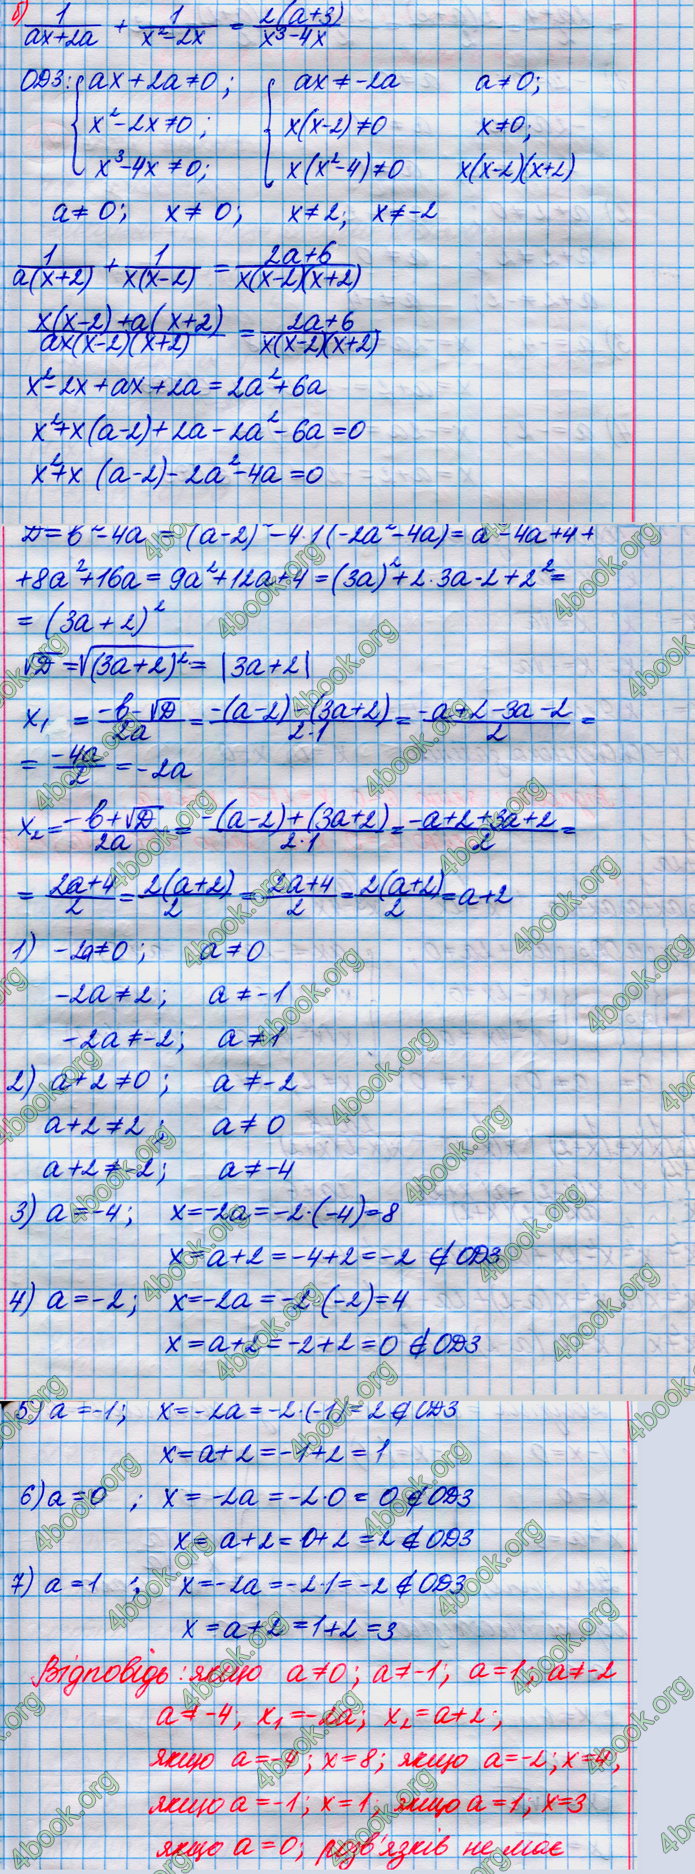 б) 1/(ax+2a) + 1/(x²-2x) = 2(a+3)/(x³-4x)
ОДЗ: { ax+2a≠0; { ax≠-2a a≠0;
x²-2x≠0; x(x-2)≠0 x≠0;
x³-4x≠0; x(x²-4)≠0 x(x-2)(x+2)
a≠0; x≠0; x≠2; x≠-2
1/(a(x+2)) + 1/(x(x-2)) = (2a+6)/(x(x-2)(x+2))
(x(x-2)+a(x+2))/(ax(x-2)(x+2)) = (2a+6)/(x(x-2)(x+2))
x²-2x+ax+2a=2a²+6a
x²+x(a-2)+2a-2a²-6a=0
x²+x(a-2)-2a²-4a=0
D=b²-4a = (a-2)²-4·1(-2a²-4a)=a²-4a+4+
+8a²+16a=9a²+12a+4=(3a)²+2·3a·2+2²=
=(3a+2)²
√D=√(3a+2)²=|3a+2|
x₁ = (-b-√D)/2a = (-(a-2)-(3a+2))/(2·1) = (-a+2-3a-2)/2 =
= -4a/2 = -2a
x₂ = (-b+√D)/2a = (-(a-2)+(3a+2))/(2·1) = (-a+2+3a+2)/2 =
= (2a+4)/2 = 2(a+2)/2 = (2a+4)/2 = 2(a+2)/2 = a+2
1) -2a≠0; a≠0
-2a≠2; a≠-1
-2a≠-2; a≠1
2) a+2≠0; a≠-2
a+2≠2; a≠0
a+2≠-2; a≠-4
3) a=-4; x=-2a=-2·(-4)=8
x=a+2=-4+2=-2 ∉ ОДЗ
4) a=-2; x=-2a=-2·(-2)=4
x=a+2=-2+2=0 ∉ ОДЗ
5) a=-1; x=-2a=-2·(-1)=2 ∉ ОДЗ
x=a+2=-1+2=1
6) a=0; x=-2a=-2·0=0 ∉ ОДЗ
x=a+2=0+2=2 ∉ ОДЗ
7) a=1; x=-2a=-2·1=-2 ∉ ОДЗ
x=a+2=1+2=3
Відповідь: якщо a≠0; a≠-1; a=1; a≠-2
a≠-4, x₁=-2a; x₂=a+2;
якщо a=-4; x=8; якщо a=-2; x=4,
якщо a=-1; x=1, якщо a=1, x=3
якщо a=0; розв'язків немає
4book.org